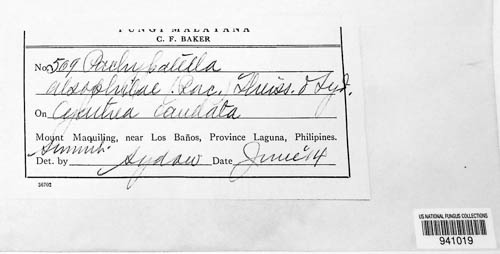 FUNGI MALAYANA
C. F. BAKER
No. 569 Pachypatella
alsophilae (Rac.) Theiss. & Syd.
On Cyathea caudata
Mount Maquiling, near Los Baños, Province Laguna, Philipines.
Summit
Det. by Sydow Date June '14
26702
US NATIONAL FUNGUS COLLECTIONS
941019